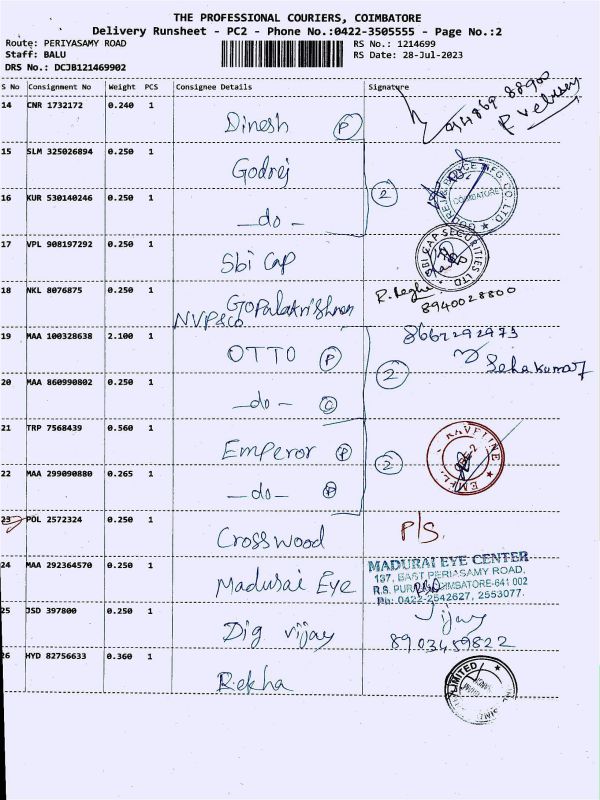 THE PROFESSIONAL COURIERS, COIMBATORE
Delivery Runsheet - PC2 - Phone No.:0422-3505555 - Page No.:2
Route: PERIYASAMY ROAD
RS No.: 1214699
Staff: BALU
RS Date: 28-Jul-2023
DRS No.: DCJB121469902
S No Consignment No Weight PCS Consignee Details Signature
14 CNR 1732172 0.240 1 Dinesh P
94869 88900
15 SLM 325026894 0.250 1 Godrej
16 KUR 530140246 0.250 1 -do- 2
COIMBATORE
17 VPL 908197292 0.250 1 Sbi Cap
SBI CAP SECURITIES LTD
18 NKL 8076875 0.250 1 Gopalakrishnan
NVP&Co
R. Reghu
8940028800
19 MAA 100328638 2.100 1 OTTO P
8667292973
20 MAA 860990802 0.250 1 -do- C 2
21 TRP 7568439 0.560 1 Emperor P
22 MAA 299090880 0.265 1 -do- P 2
23 POL 2572324 0.250 1 Crosswood P/S.
24 MAA 292364570 0.250 1 Madurai Eye
MADURAI EYE CENTER
137, EAST PERIASAMY ROAD,
R.S. PURAM, COIMBATORE-641 002
Ph: 0422-2542627, 2553077.
25 JSD 397800 0.250 1 Dig vijay
Vijay
8903459822
26 HYD 82756633 0.360 1 Rekha
LIMITED